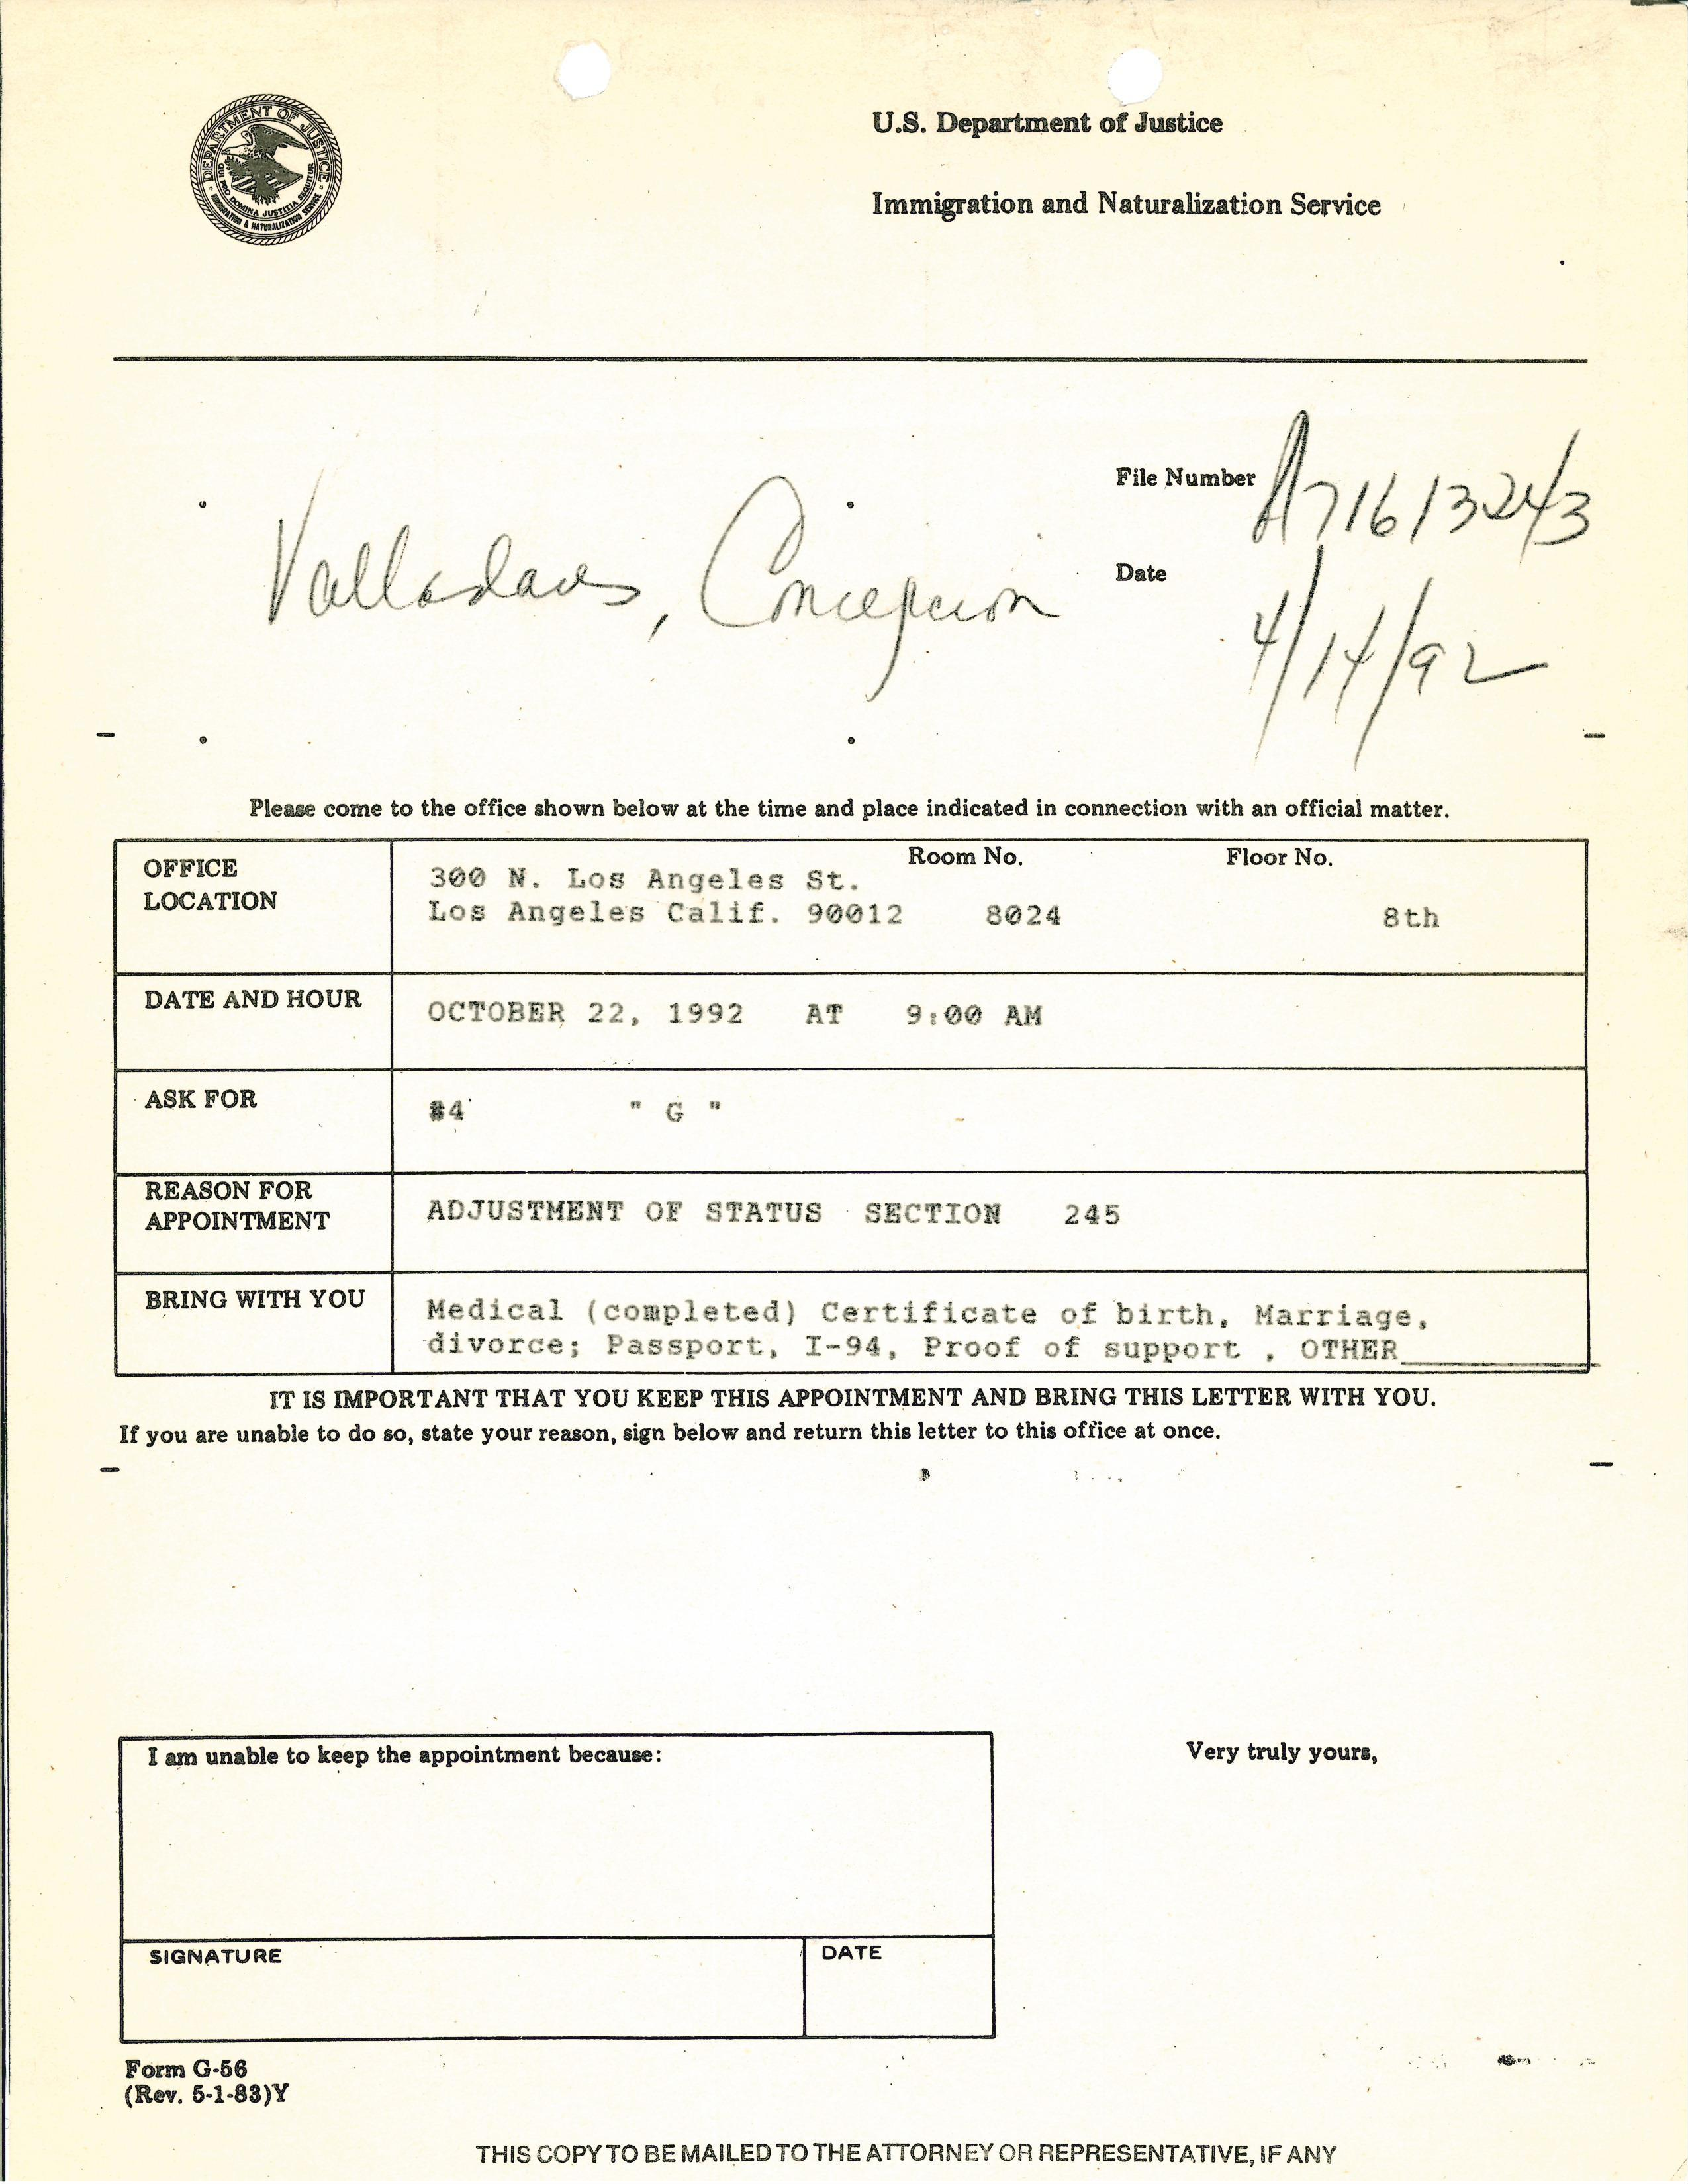 DEPARTMENT OF JUSTICE
QUI PRO DOMINA JUSTITIA SEQUITUR
IMMIGRATION & NATURALIZATION SERVICE
U.S. Department of Justice
Immigration and Naturalization Service
File Number A71613243
Valladares, Concepcion
Date
4/14/92
Please come to the office shown below at the time and place indicated in connection with an official matter.
OFFICE LOCATION
Room No. Floor No.
300 N. Los Angeles St.
Los Angeles Calif. 90012 8024 8th
DATE AND HOUR
OCTOBER 22, 1992 AT 9:00 AM
ASK FOR
#4 " G "
REASON FOR
APPOINTMENT
ADJUSTMENT OF STATUS SECTION 245
BRING WITH YOU
Medical (completed) Certificate of birth, Marriage,
divorce; Passport, I-94, Proof of support , OTHER
IT IS IMPORTANT THAT YOU KEEP THIS APPOINTMENT AND BRING THIS LETTER WITH YOU.
If you are unable to do so, state your reason, sign below and return this letter to this office at once.
I am unable to keep the appointment because:
Very truly yours,
SIGNATURE
DATE
Form G-56
(Rev. 5-1-83)Y
THIS COPY TO BE MAILED TO THE ATTORNEY OR REPRESENTATIVE, IF ANY